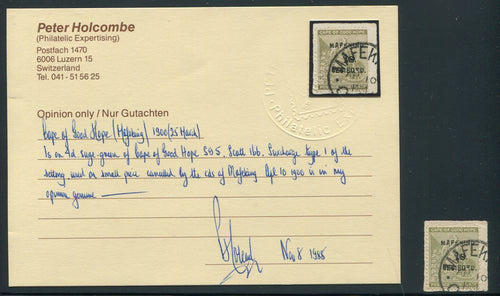 Peter Holcombe
(Philatelic Expertising)
Postfach 1470
6006 Luzern 15
Switzerland
Tel. 041 - 51 56 25
CAPE OF GOOD HOPE
MAFEKING,
BESIEGED.
MAFEKI
10
Opinion only / Nur Gutachten
Cape of Good Hope (Mafeking) 1900 (25 March)
1s on 4d sage-green of Cape of Good Hope SG5, Scott 166. Surcharge type 1 of the
setting, used on small piece cancelled by the cds of Mafeking Apl 10 1900 is in my
opinion genuine
Nov 8 1988
CAPE OF GOOD HOPE
MAFEKING,
BESIEGED.
MAFEKI
10